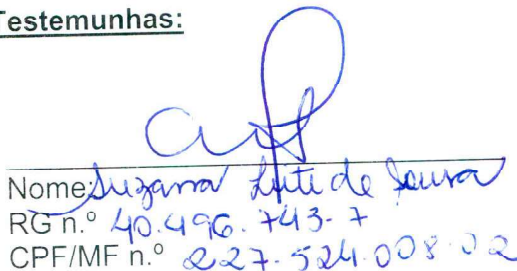 Testemunhas:
Nome: Suzana Leite de Souza
RG n.º 40.496.743-7
CPF/MF n.º 227.524.008-02